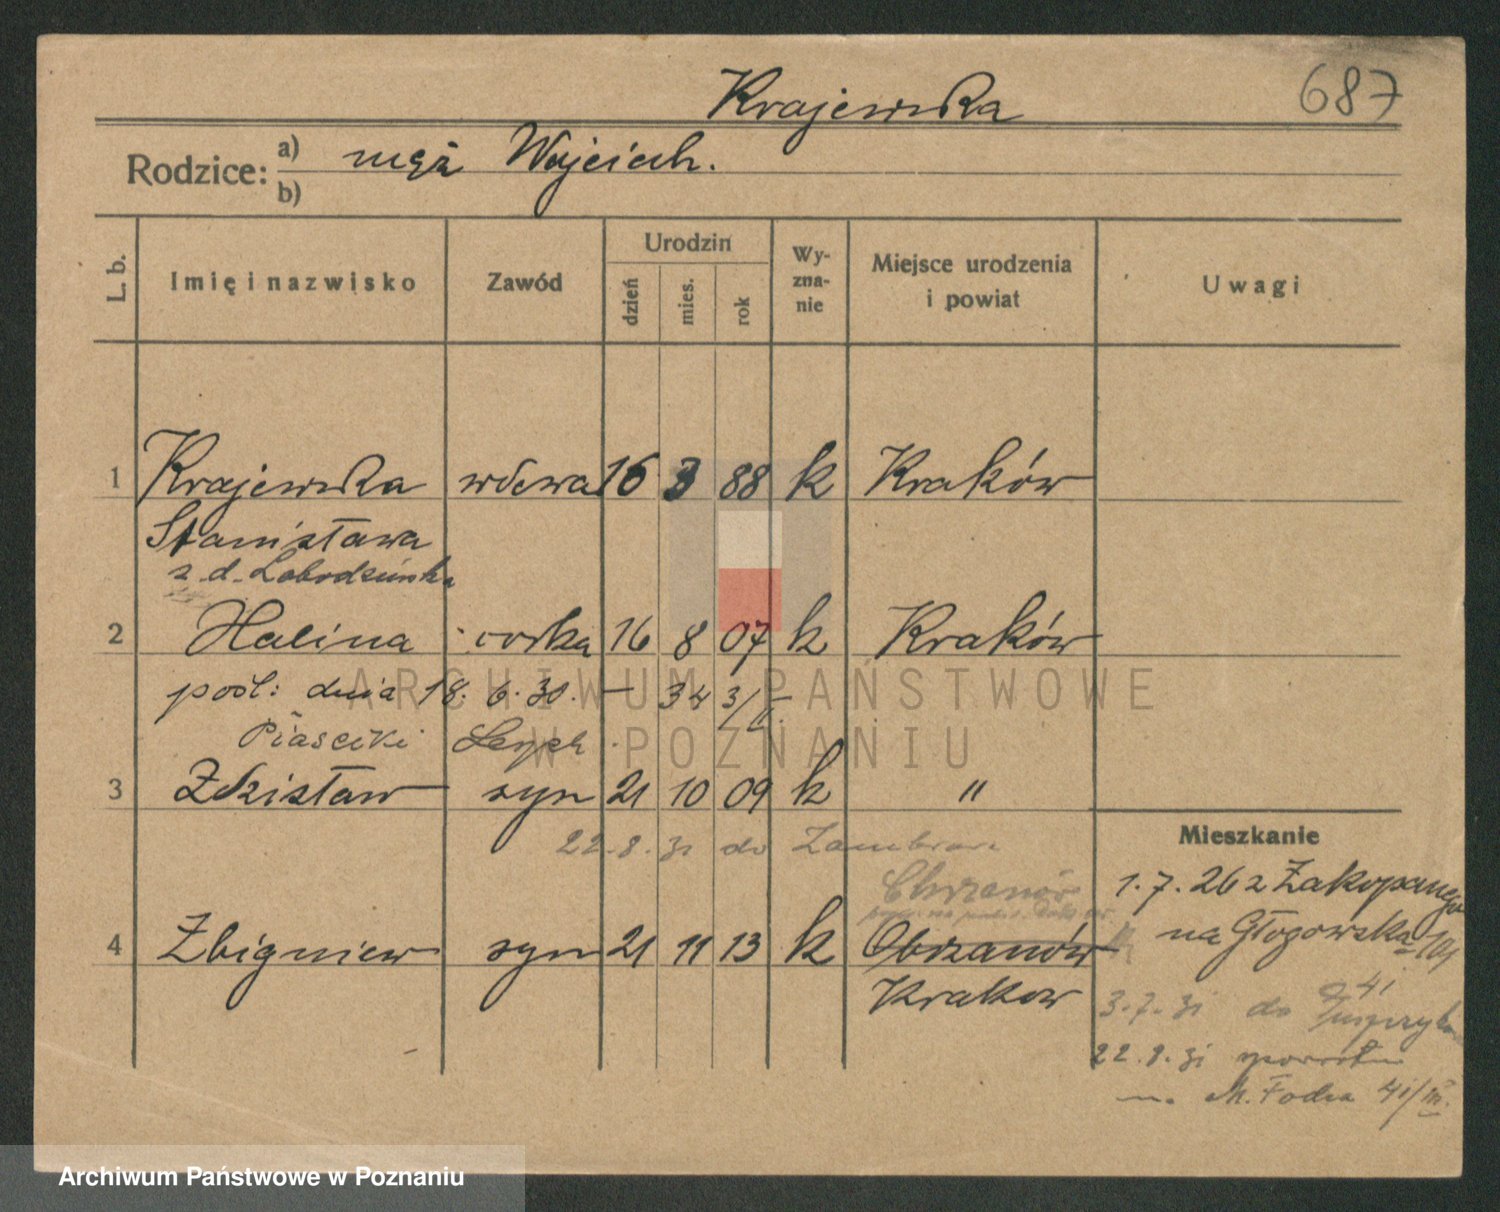 Krajewska
687
Rodzice:
a) mąż Wojciech.
b)
L. b.
Imię i nazwisko
Zawód
Urodzin
dzień
mies.
rok
Wy-
zna-
nie
Miejsce urodzenia
i powiat
Uwagi
1 Krajewska wdowa 16 3 88 k Kraków
Stanisława
z d. Łobodzińska
2 Halina córka 16 8 07 k Kraków
pośl: dnia 18. 6. 30. – 34 3/V.
Piasecki Lech
3 Zdzisław syn 21 10 09 k "
22. 8. 31 do
Mieszkanie
Chrzanów
1. 7. 26 z Zakopanego
4 Zbigniew syn 21 11 13 k Obrzanów
na Głogowska 101
Krakow
3. 7. 31 do
22. 8. 31
M. Focha 41/III.
ARCHIWUM PAŃSTWOWE
W POZNANIU
Archiwum Państwowe w Poznaniu